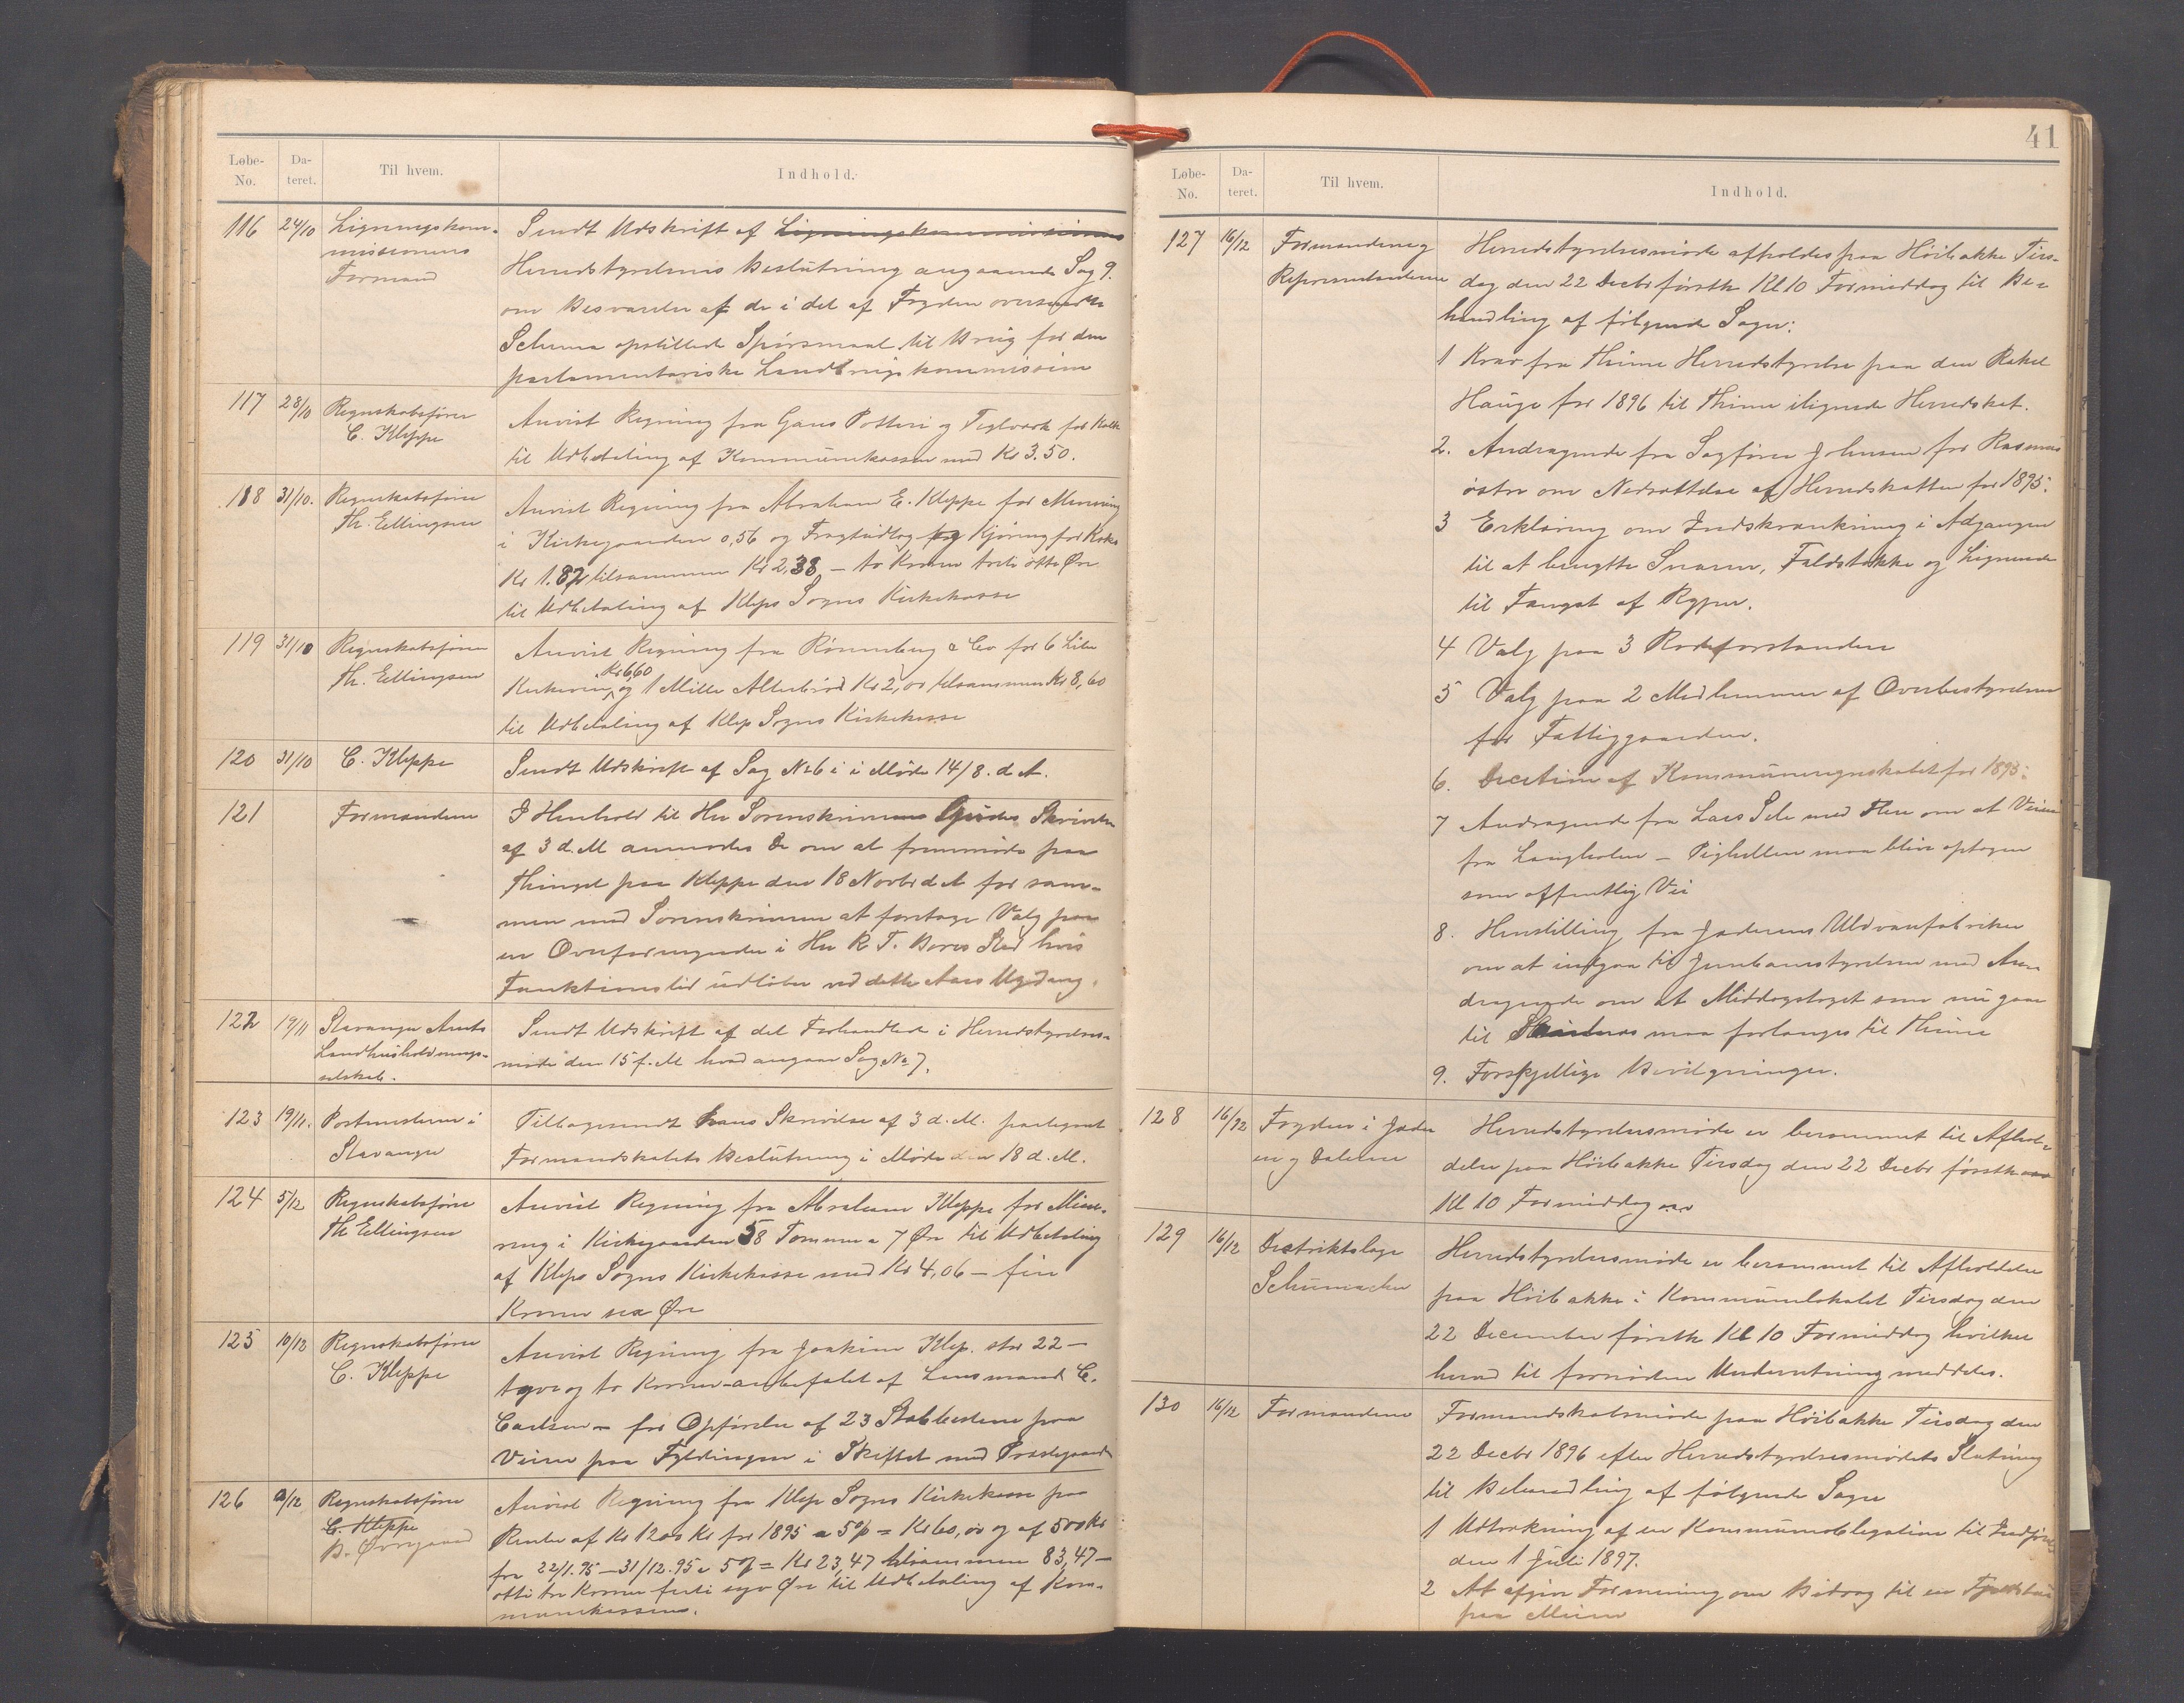 41
Løbe-No. Dateret. Til hvem. Indhold.
116 24/10 Ligningskommissionens Formand
Sendt Udskrift af Ligningskommissionens
Herredstyrelsens Beslutning angaaende Sag 9.
om Besvarelse af de i det af Fogden oversendte
Schema opstillede Spørsmaal til Brug for den
parlamentariske Landbrugskommission
117 28/10 Regnskabsfører C. Kleppe
Anvist Regning fra Gans Potteri og Teglværk for Kalk
til Udbetaling af Kommunekassen med Kr 3.50.
118 31/10. Regnskabsfører Th. Ellingsen
Anvist Regning fra Abraham E. Kleppe for Minering
i Kirkegaarden 0,56 og Fragtudlæg og Kjøring for Koks
Kr 1.82 tilsammen Kr 2,38 – to Kroner treti otte Øre
til Udbetaling af Kleps Sogns Kirkekasse
119 31/10 Regnskabsfører Th. Ellingsen
Anvist Regning fra Rønneberg & Co for 6 Liter
Kirkevin Kr 6,60 og 1 Mille Alterbrød Kr 2,00 tilsammen Kr 8,60
til Udbetaling af Klep Sogns Kirkekasse
120 31/10 C. Kleppe
Sendt Udskrift af Sag No 6 i i Møde 14/8. d A.
121 Formændene
I Henhold til Hr Sorenskriver Gjides Skrivelse
af 3 d. M anmodes De om at fremmøde paa
Thinget paa Kleppe den 18 Novbr d A for sam-
men med Sorenskriveren at foretage Valg paa
en Overformynder i Hr R T. Bores Sted hvis
Funktionstid udløber ved dette Aars Udgang.
122 19/11 Stavanger Amts Landhusholdnings-selskab.
Sendt Udskrift af det Forhandlede i Herredstyrelses-
møde den 15 f. M hvad angaar Sag No 7.
123 19/11. Postmesteren i Stavanger
Tilbagesendt hans Skrivelse af 3 d. M. paategnet
Formandskabets Beslutning i Møde den 18 d. M.
124 5/12 Regnskabsfører Th Ellingsen
Anvist Regning fra Abraham Kleppe for Mine-
ring i Kirkegaarden 58 Tommer a 7 Øre til Udbetaling
af Klep Sogns Kirkekasse med Kr 4,06 – fire
Kroner sex Øre
125 10/12 Regnskabsfører C. Kleppe
Anvist Regning fra Joakim Klep. stor 22 –
tyve og to Kroner – anbefalet af Lensmand C.
Carlsen – for Opførelse af 23 Stabbestene paa
Veien paa Fyldingen i Skiftet med Præstegaard
126 9/12 Regnskabsfører C. Kleppe
Anvist Regning fra Klep Sogns Kirkekasse paa
Renter af Kr 1200 Kr for 1895 a 5% = Kr 60,00 og af 500 Kr
fra 22/1.95 – 31/12.95 a 5% = Kr 23,47 tilsammen 83,47 –
otti tre Kroner firti syv Øre til Udbetaling af Kom-
munekassen.
Løbe-No. Dateret. Til hvem. Indhold.
127 16/12 Formændene og Repræsentanterne
Herredstyrelsesmøde afholdes paa Høibakke Tirs-
dag den 22 Decbr førstk Kl 10 Formiddag til Be-
handling af følgende Sager:
1 Krav fra Thime Herredstyrelse paa den Rakel
Hauge for 1896 til Thime ilignede Herredskat.
2. Andragende fra Sagfører Johnsen for Rasmus
østre om Nedsættelse af Herredskatten for 1895.
3 Erklæring om Indskrænkning i Adgangen
til at benytte Snarer, Faldstokke og Lignende
til Fangst af Ryper.
4 Valg paa 3 Rodeforstandere
5 Valg paa 2 Medlemmer af Overbestyrelsen
for Fattiggaarden.
6. Decision af Kommuneregnskabet for 1895.
7 Andragende fra Lars Sele med Flere om at Veien
fra Langholen – Pighellen maa blive optagen
som offentlig Vei
8. Henstilling fra Jæderens Uldvarefabriker
om at indgaa til Jernbanestyrelsen med An-
dragende om at Middagstoget som nu gaar
til Sandnes maa forlænges til Thime
9. Forskjellige Bevilgninger.
128 16/12 Fogden i Jæderen og Dalerne
Herredstyrelsesmøde er berammet til Afhol-
delse paa Høibakke Tirsdag den 22 Decbr førstk
Kl 10 Formiddag
129 16/12 Distriktslæge Schumacher
Herredstyrelsesmøde er berammet til Afholdelse
paa Høibakke i Kommunelokalet Tirsdag den
22 December førstk Kl 10 Formiddag hvilket
herved til fornøden Underretning meddeles.
130 16/12 Formændene
Formandskabsmøde paa Høibakke Tirsdag den
22 Decbr 1896 efter Herredstyrelsesmødets Slutning
til Behandling af følgende Sager
1 Udtrækning af en Kommuneobligation til Indfrielse
den 1 Juli 1897.
2 At afgive Formening om Bidrag til en
paa